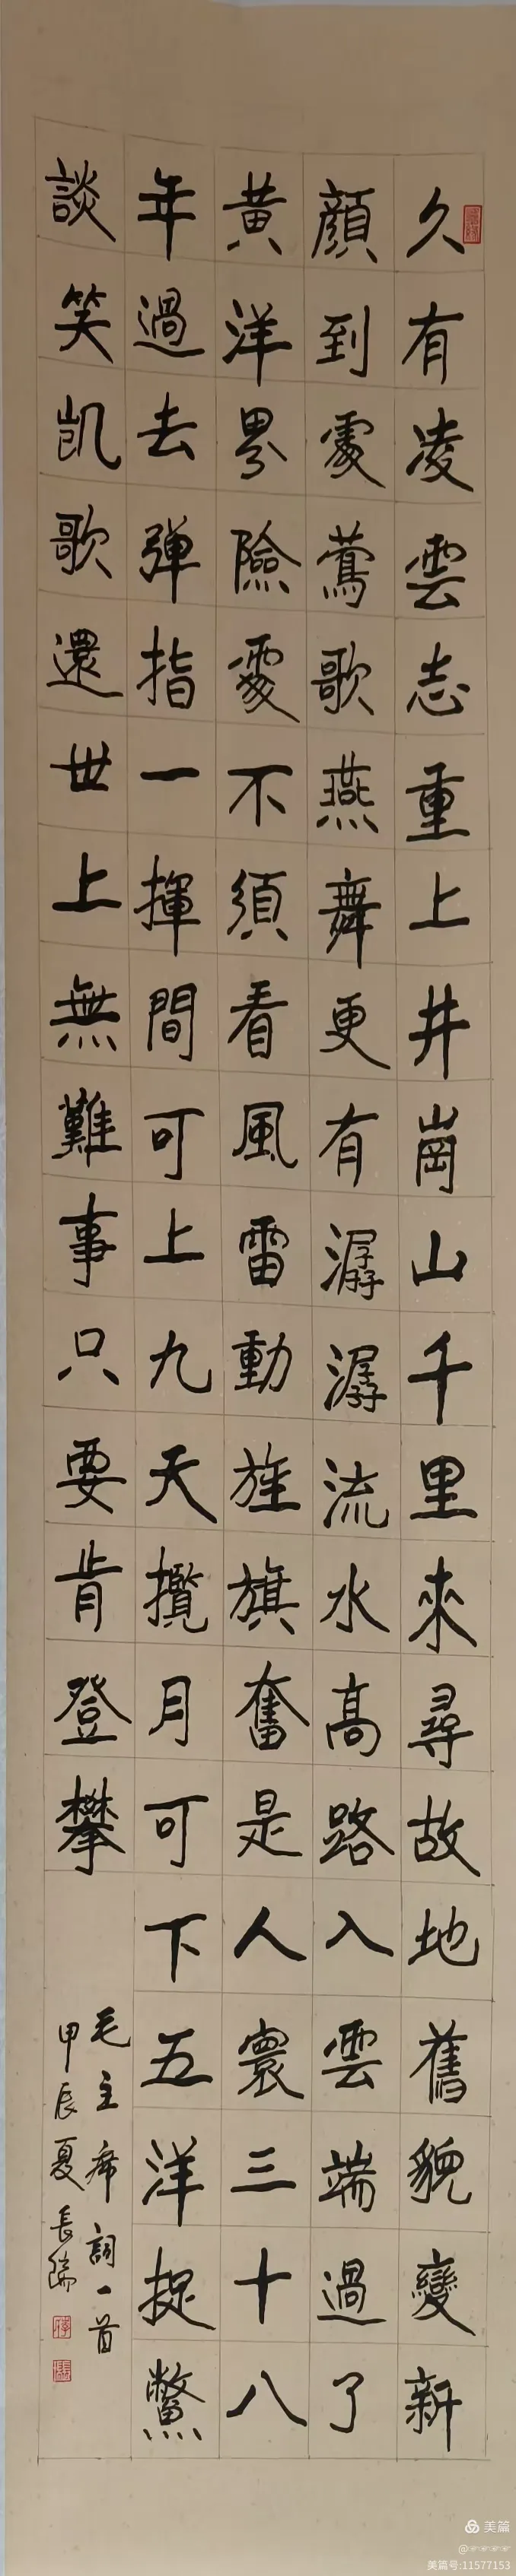 久有凌雲志重上井崗山千里來尋故地舊貌變新
顔到處鶯歌燕舞更有潺潺流水高路入雲端過了
黄洋界險處不須看風雷動旌旗奮是人寰三十八
年過去弹指一揮間可上九天攬月可下五洋捉鱉
談笑凱歌還世上無難事只要肯登攀
毛主席詞一首
甲辰夏長
美篇
美篇号:11577153